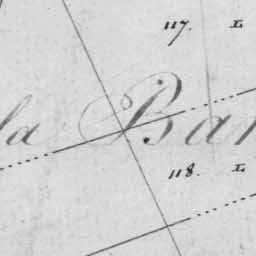 117. L
la Bar
118. L